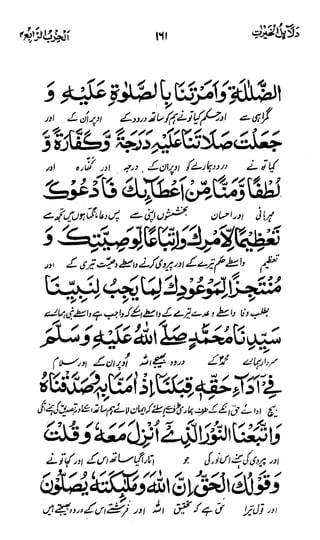 دلائل الخیرات ۱۶۱ الحزب الرابع
الضَّلَالَةِ وَاَمَرْتَنَا بِالصَّلٰوةِ عَلَيْهِ وَ
گمراہی سے اور حکم کیا تونے ہم کو ساتھ درود کے اوپر اُن کے اور
جَعَلْتَ صَلَاتَنَا عَلَيْهِ دَرَجَةً وَّكَفَّارَةً وَّ
کیا تو نے درود ہمارے کو اوپر ان کے درجہ اور کفارہ اور
لُطْفًا وَّمَنًّا مِّنْ اِعْطَائِكَ فَاَدْعُوْكَ
مہربانی اور احسان بخششوں اپنی سے پس دعا مانگتا ہوں میں تجھ سے
تَعْظِيْمًا لِاَمْرِكَ وَاتِّبَاعًا لِوَصِيَّتِكَ وَ
تعظیم واسطے حکم تیرے کے اور پیروی کرنے واسطے وصیت تیری کے اور
مُنْتَجِزًا لِمَوْعُوْدِكَ لِمَا يَجِبُ لِنَبِيِّنَا
بطلب وفا واسطے وعدے تیرے کے واسطے اسکے کہ واجب ہے واسطے نبی ہمارے
سَيِّدِنَا مُحَمَّدٍ صَلَّى اللّٰهُ عَلَيْهِ وَسَلَّمَ
سردار ہمارے محمدؐ کے درود بھیجے اللہ اوپر ان کے اور سلام
فِيْ اَدَاۤءِ حَقِّهٖ قِبَلَنَا اِذْ اٰمَنَّا بِهٖ وَصَدَّقْنَاهُ
بیچ ادائے حق انکے کے طرف ہماری
وَاتَّبَعْنَا النُّوْرَ الَّذِيْۤ اُنْزِلَ مَعَهٗ وَقُلْتَ
اور پیروی کی ہم نے اس نور کی جو اتارا گیا ساتھ اس کے اور کہا تونے
وَقَوْلُكَ الْحَقُّ اِنَّ اللّٰهَ وَمَلٰۤئِكَتَهٗ يُصَلُّوْنَ
اور قول تیرا حق ہے کہ تحقیق اللہ اور فرشتے اس کے درود بھیجتے ہیں